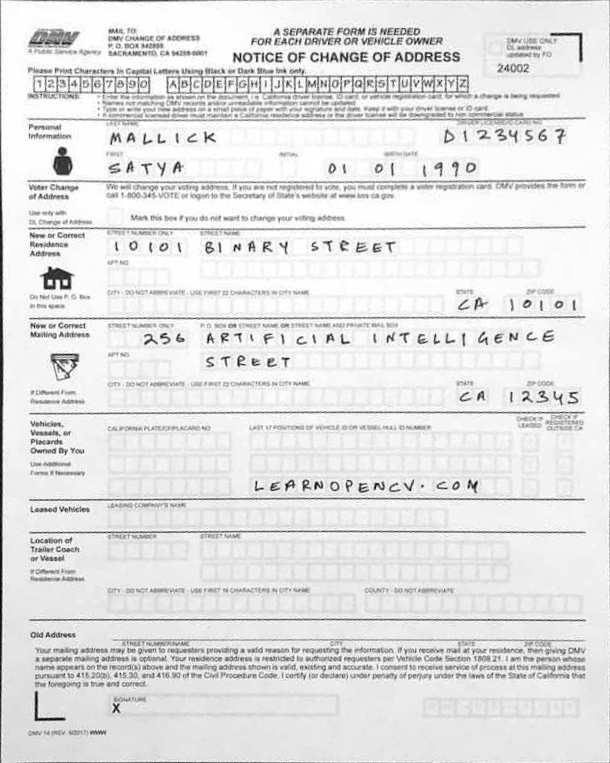 DMV
A Public Service Agency
MAIL TO:
DMV CHANGE OF ADDRESS
P. O. BOX 942859
SACRAMENTO, CA 94259-0001
A SEPARATE FORM IS NEEDED
FOR EACH DRIVER OR VEHICLE OWNER
NOTICE OF CHANGE OF ADDRESS
DMV USE ONLY
DL address
updated by FO
24002
Please Print Characters In Capital Letters Using Black or Dark Blue Ink only.
1 2 3 4 5 6 7 8 9 0 A B C D E F G H I J K L M N O P Q R S T U V W X Y Z
INSTRUCTIONS:
• Enter the information as shown on the document, i.e. California driver license, ID card, or vehicle registration card, for which a change is being requested
• Names not matching DMV records and/or unreadable information cannot be updated
• Type or write your new address on a small piece of paper with your signature and date. Keep it with your driver license or ID card.
• If commercial licensed driver must maintain a California residence address or the driver license will be downgraded to non commercial status
Personal
Information
LAST NAME
DRIVER LICENSE/ID CARD NO
MALLICK D1234567
FIRST
INITIAL
BIRTH DATE
SATYA 01 01 1990
Voter Change
of Address
We will change your voting address. If you are not registered to vote, you must complete a voter registration card. DMV provides the form or
call 1-800-345-VOTE or logon to the Secretary of State's website at www.sos.ca.gov.
Use only with
DL Change of Address
Mark this box if you do not want to change your voting address.
New or Correct
Residence
Address
STREET NUMBER ONLY
STREET NAME
10101 BINARY STREET
APT NO.
Do Not Use P. O. Box
in this space
CITY - DO NOT ABBREVIATE - USE FIRST 22 CHARACTERS IN CITY NAME
STATE
ZIP CODE
CA 10101
New or Correct
Mailing Address
STREET NUMBER ONLY
P. O. BOX OR STREET NAME OR STREET NAME AND PRIVATE MAIL BOX
256 ARTIFICIAL INTELLIGENCE
APT NO.
STREET
If Different From
Residence Address
CITY - DO NOT ABBREVIATE - USE FIRST 22 CHARACTERS IN CITY NAME
STATE
ZIP CODE
CA 12345
Vehicles,
Vessels, or
Placards
Owned By You
CALIFORNIA PLATE/CF/PLACARD NO
LAST 17 POSITIONS OF VEHICLE ID OR VESSEL HULL ID NUMBER
CHECK IF
LEASED
CHECK IF
REGISTERED
OUTSIDE CA
Use Additional
Forms If Necessary
LEARNOPENCV.COM
Leased Vehicles
LEASING COMPANY'S NAME
Location of
Trailer Coach
or Vessel
STREET NUMBER
STREET NAME
If Different From
Residence Address
CITY - DO NOT ABBREVIATE - USE FIRST 18 CHARACTERS IN CITY NAME
COUNTY - DO NOT ABBREVIATE
Old Address
STREET NUMBER/NAME
CITY
STATE
ZIP CODE
Your mailing address may be given to requesters providing a valid reason for requesting the information. If you receive mail at your residence, then giving DMV
a separate mailing address is optional. Your residence address is restricted to authorized requesters per Vehicle Code Section 1808.21. I am the person whose
name appears on the record(s) above and the mailing address shown is valid, existing and accurate. I consent to receive service of process at this mailing address
pursuant to 415.20(b), 415.30, and 416.90 of the Civil Procedure Code. I certify (or declare) under penalty of perjury under the laws of the State of California that
the foregoing is true and correct.
SIGNATURE
X
DMV 14 (REV. 5/2017) WWW